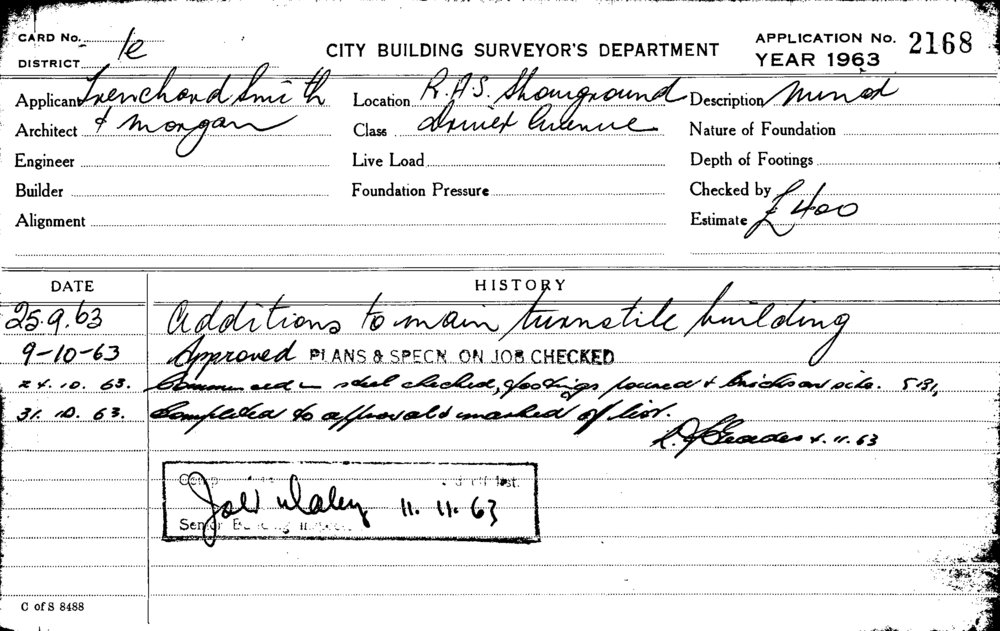 CARD No. 1e
DISTRICT
CITY BUILDING SURVEYOR'S DEPARTMENT
APPLICATION No. 2168
YEAR 1963
Applicant Trenchard Smith
Architect & Morgan
Engineer
Builder
Alignment
Location R.A.S. Showground
Class Driver Avenue
Live Load
Foundation Pressure
Description Minor
Nature of Foundation
Depth of Footings
Checked by
Estimate £400
DATE HISTORY
25.9.63 Additions to main turnstile building
9-10-63 Approved PLANS & SPECN. ON JOB CHECKED
24.10.63. Commenced steel checked, footings poured & bricks on site.
31.10.63. Completed to approval & marked off list.
11.63
Daley 11.11.63
Senior Building
C of S 8488